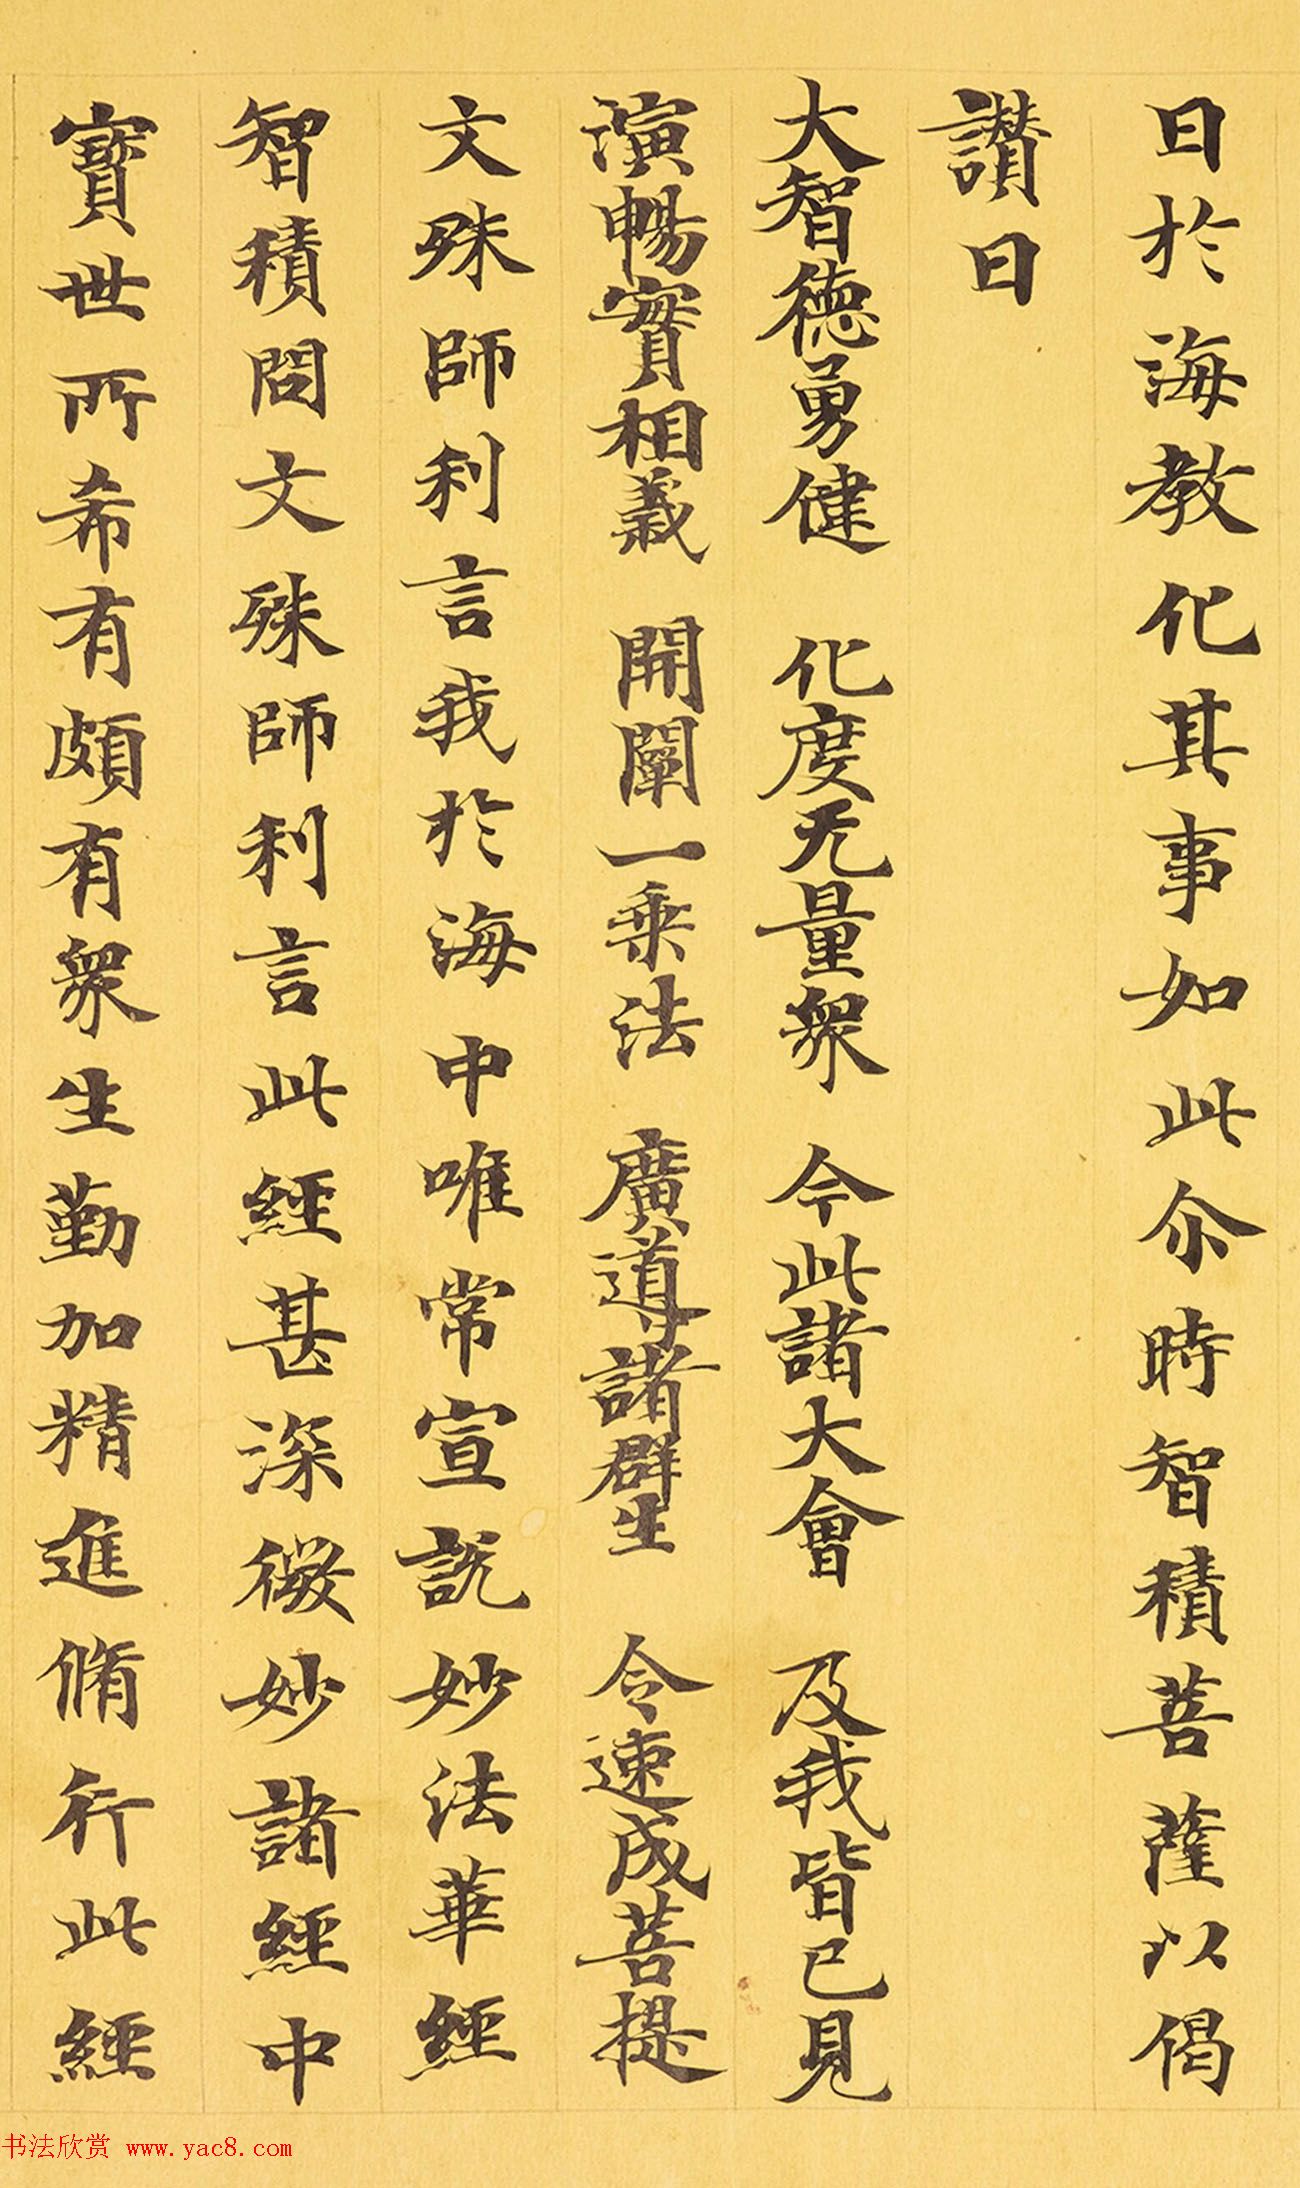 曰於海教化其事如此尒時智積菩薩以偈
讃曰
大智德勇健　化度无量衆　今此諸大會　及我皆已見
演暢實相義　開闡一乗法　廣導諸群生　令速成菩提
文殊師利言我於海中唯常宣説妙法華經
智積問文殊師利言此經甚深微妙諸經中
寳世所希有頗有衆生勤加精進脩行此經
书法欣赏 www.yac8.com